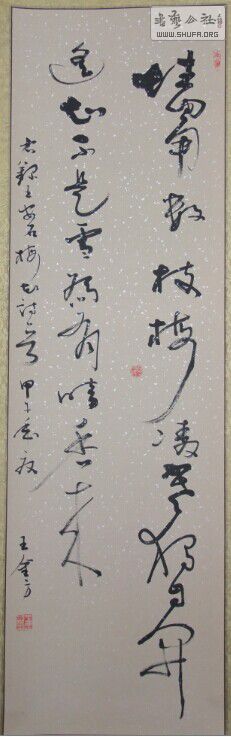 书艺公社
WWW.SHUFA.ORG
墙角数枝梅凌寒独自开
遥知不是雪为有暗香来
右录王安石梅花诗一首 甲午
王金方